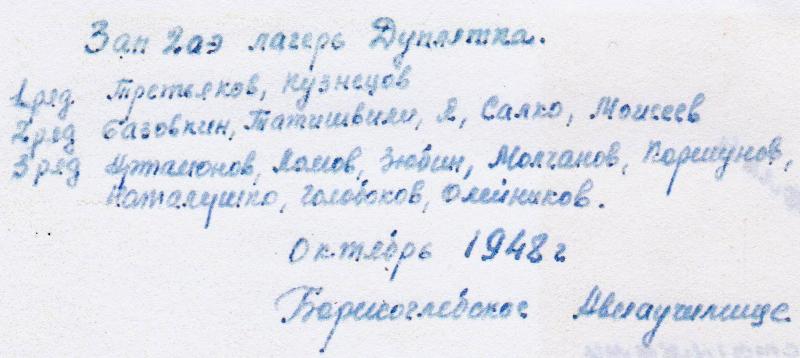 Зап 2аэ лагерь Дуплятка.
1 ряд Третьяков, Кузнецов
2 ряд Баговкин, Таташвили, Я, Салко, Моисеев
3 ряд Артамонов, Ломов, Зюбин, Молчанов, Коршунов,
Наталушко, Голобоков, Олейников.
Октябрь 1948 г
Борисоглебское Авиаучилище